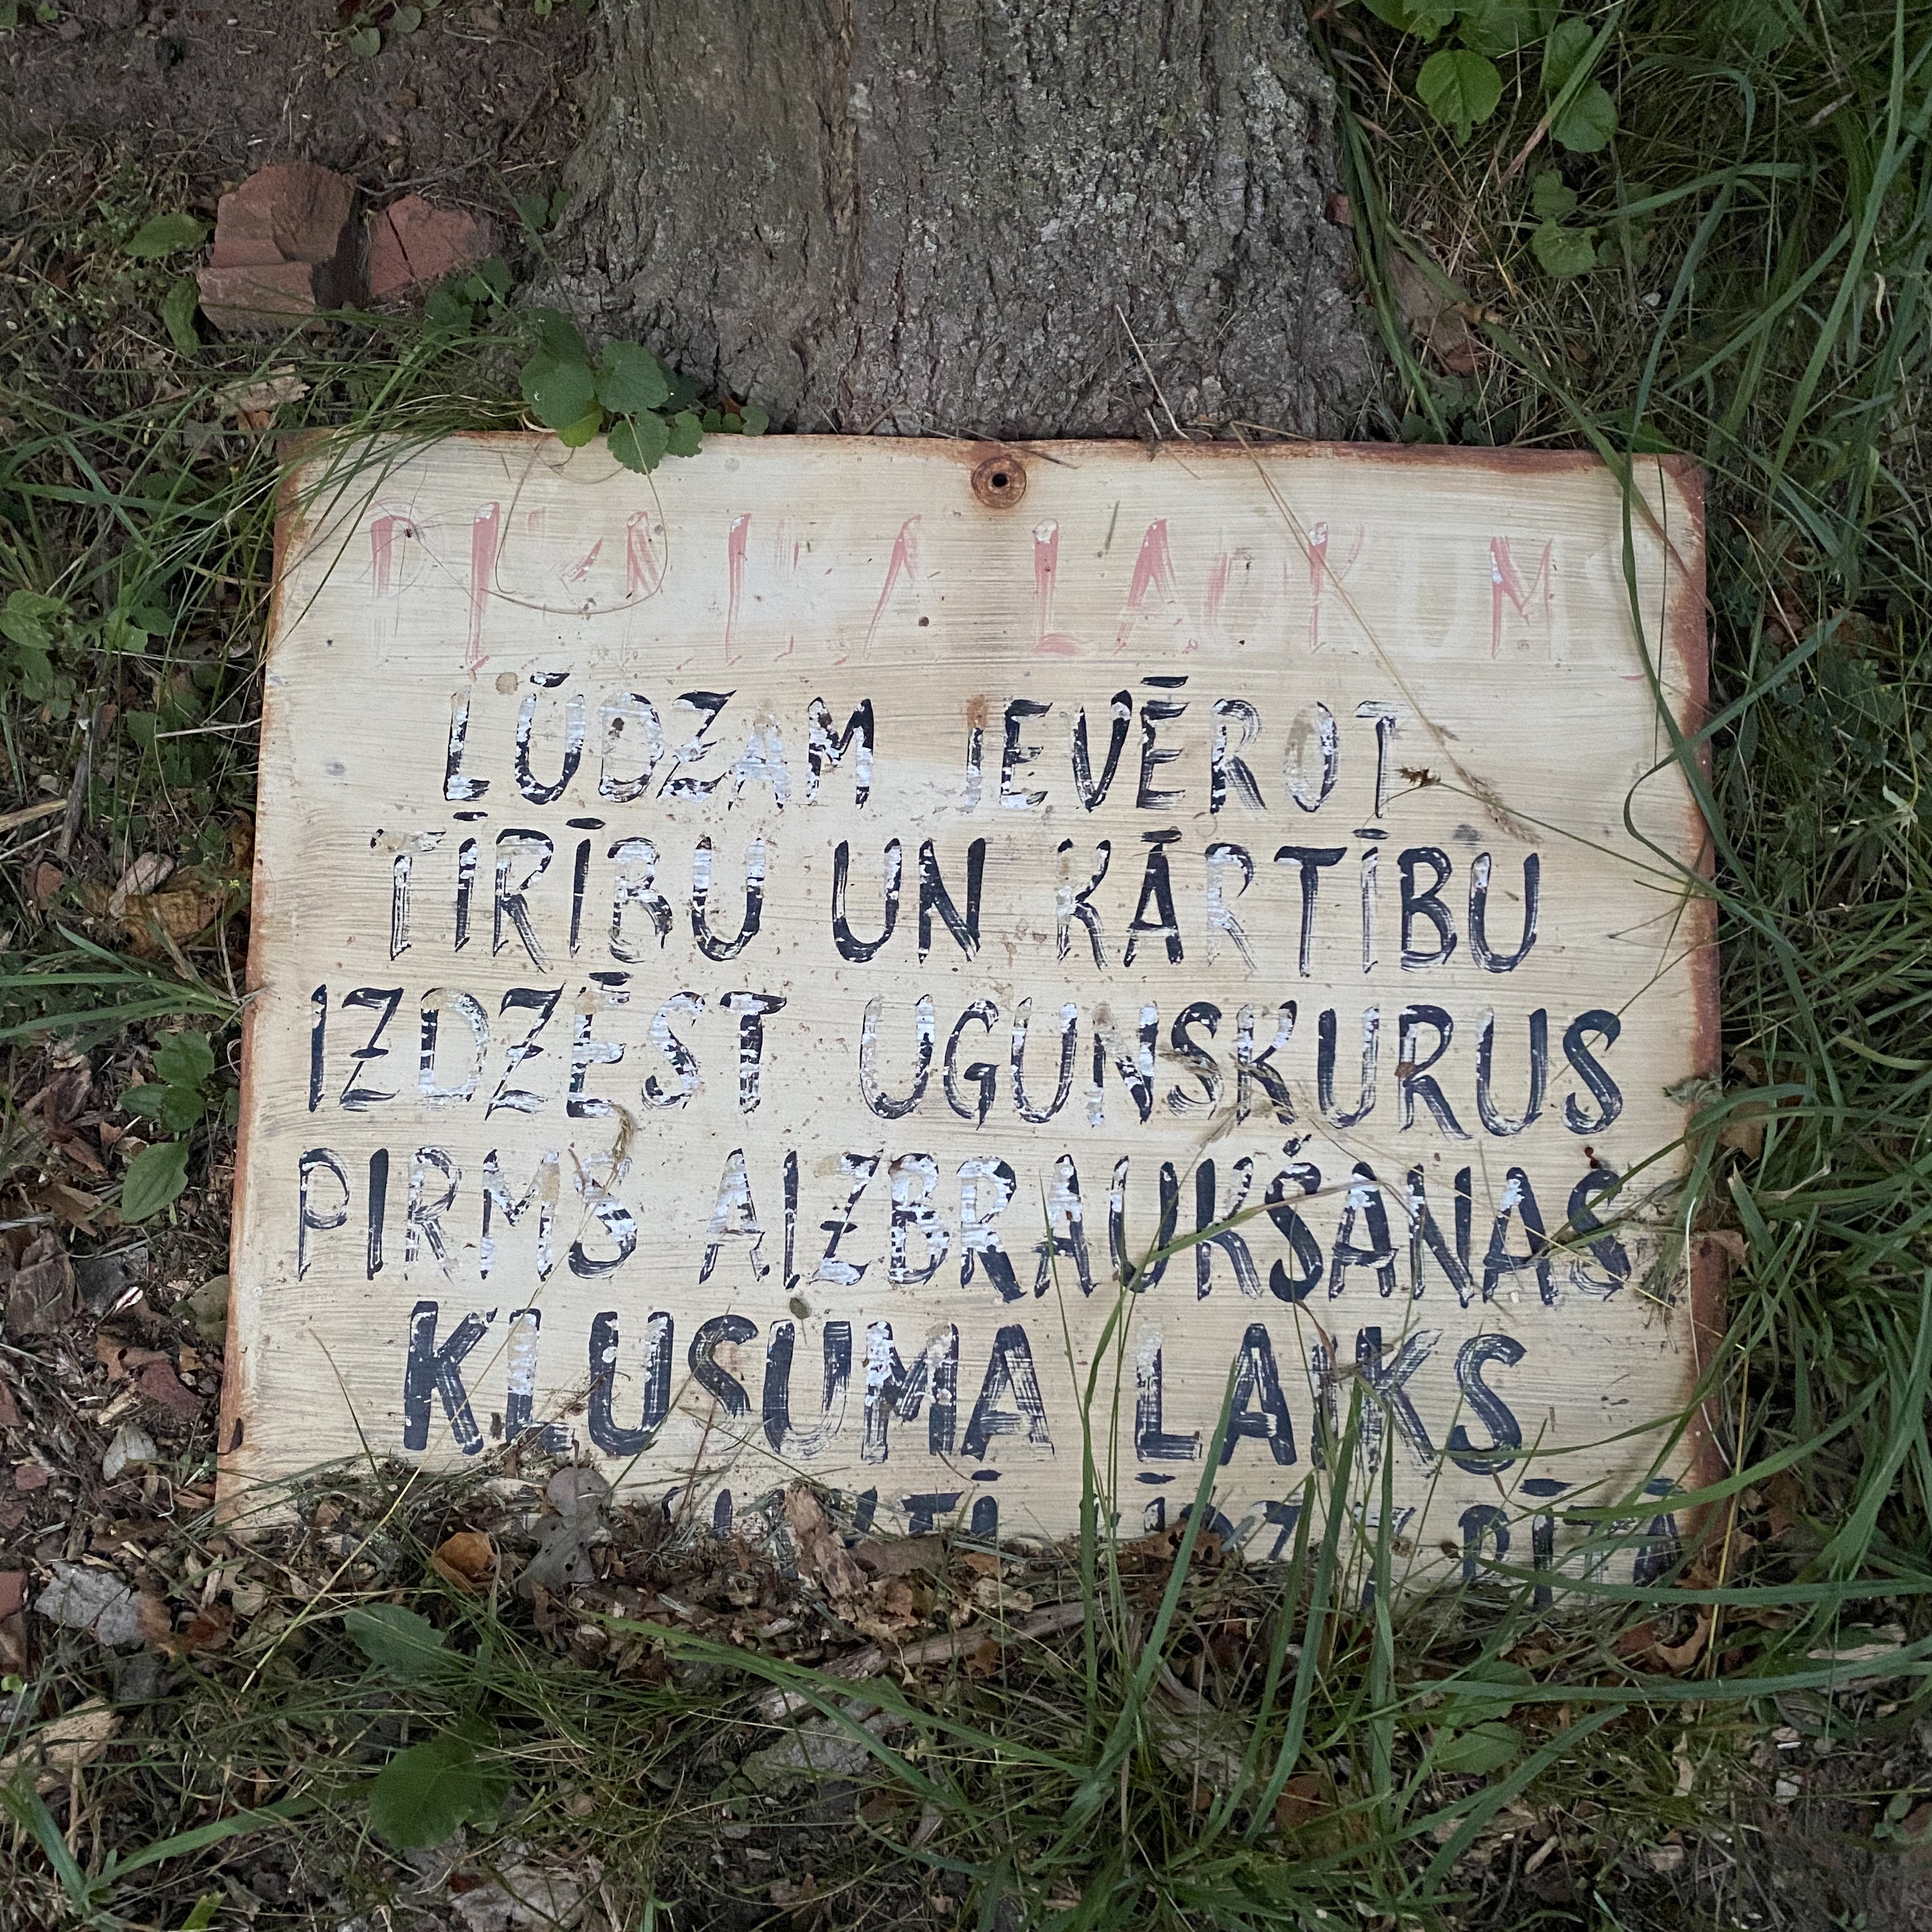 PIKNIKA LAUKUMS
LŪDZAM IEVĒROT
TĪRĪBU UN KĀRTĪBU
IZDZĒST UGUNSKURUS
PIRMS AIZBRAUKŠANAS
KLUSUMA LAIKS
NAKTĪ LĪDZ RĪTĀ